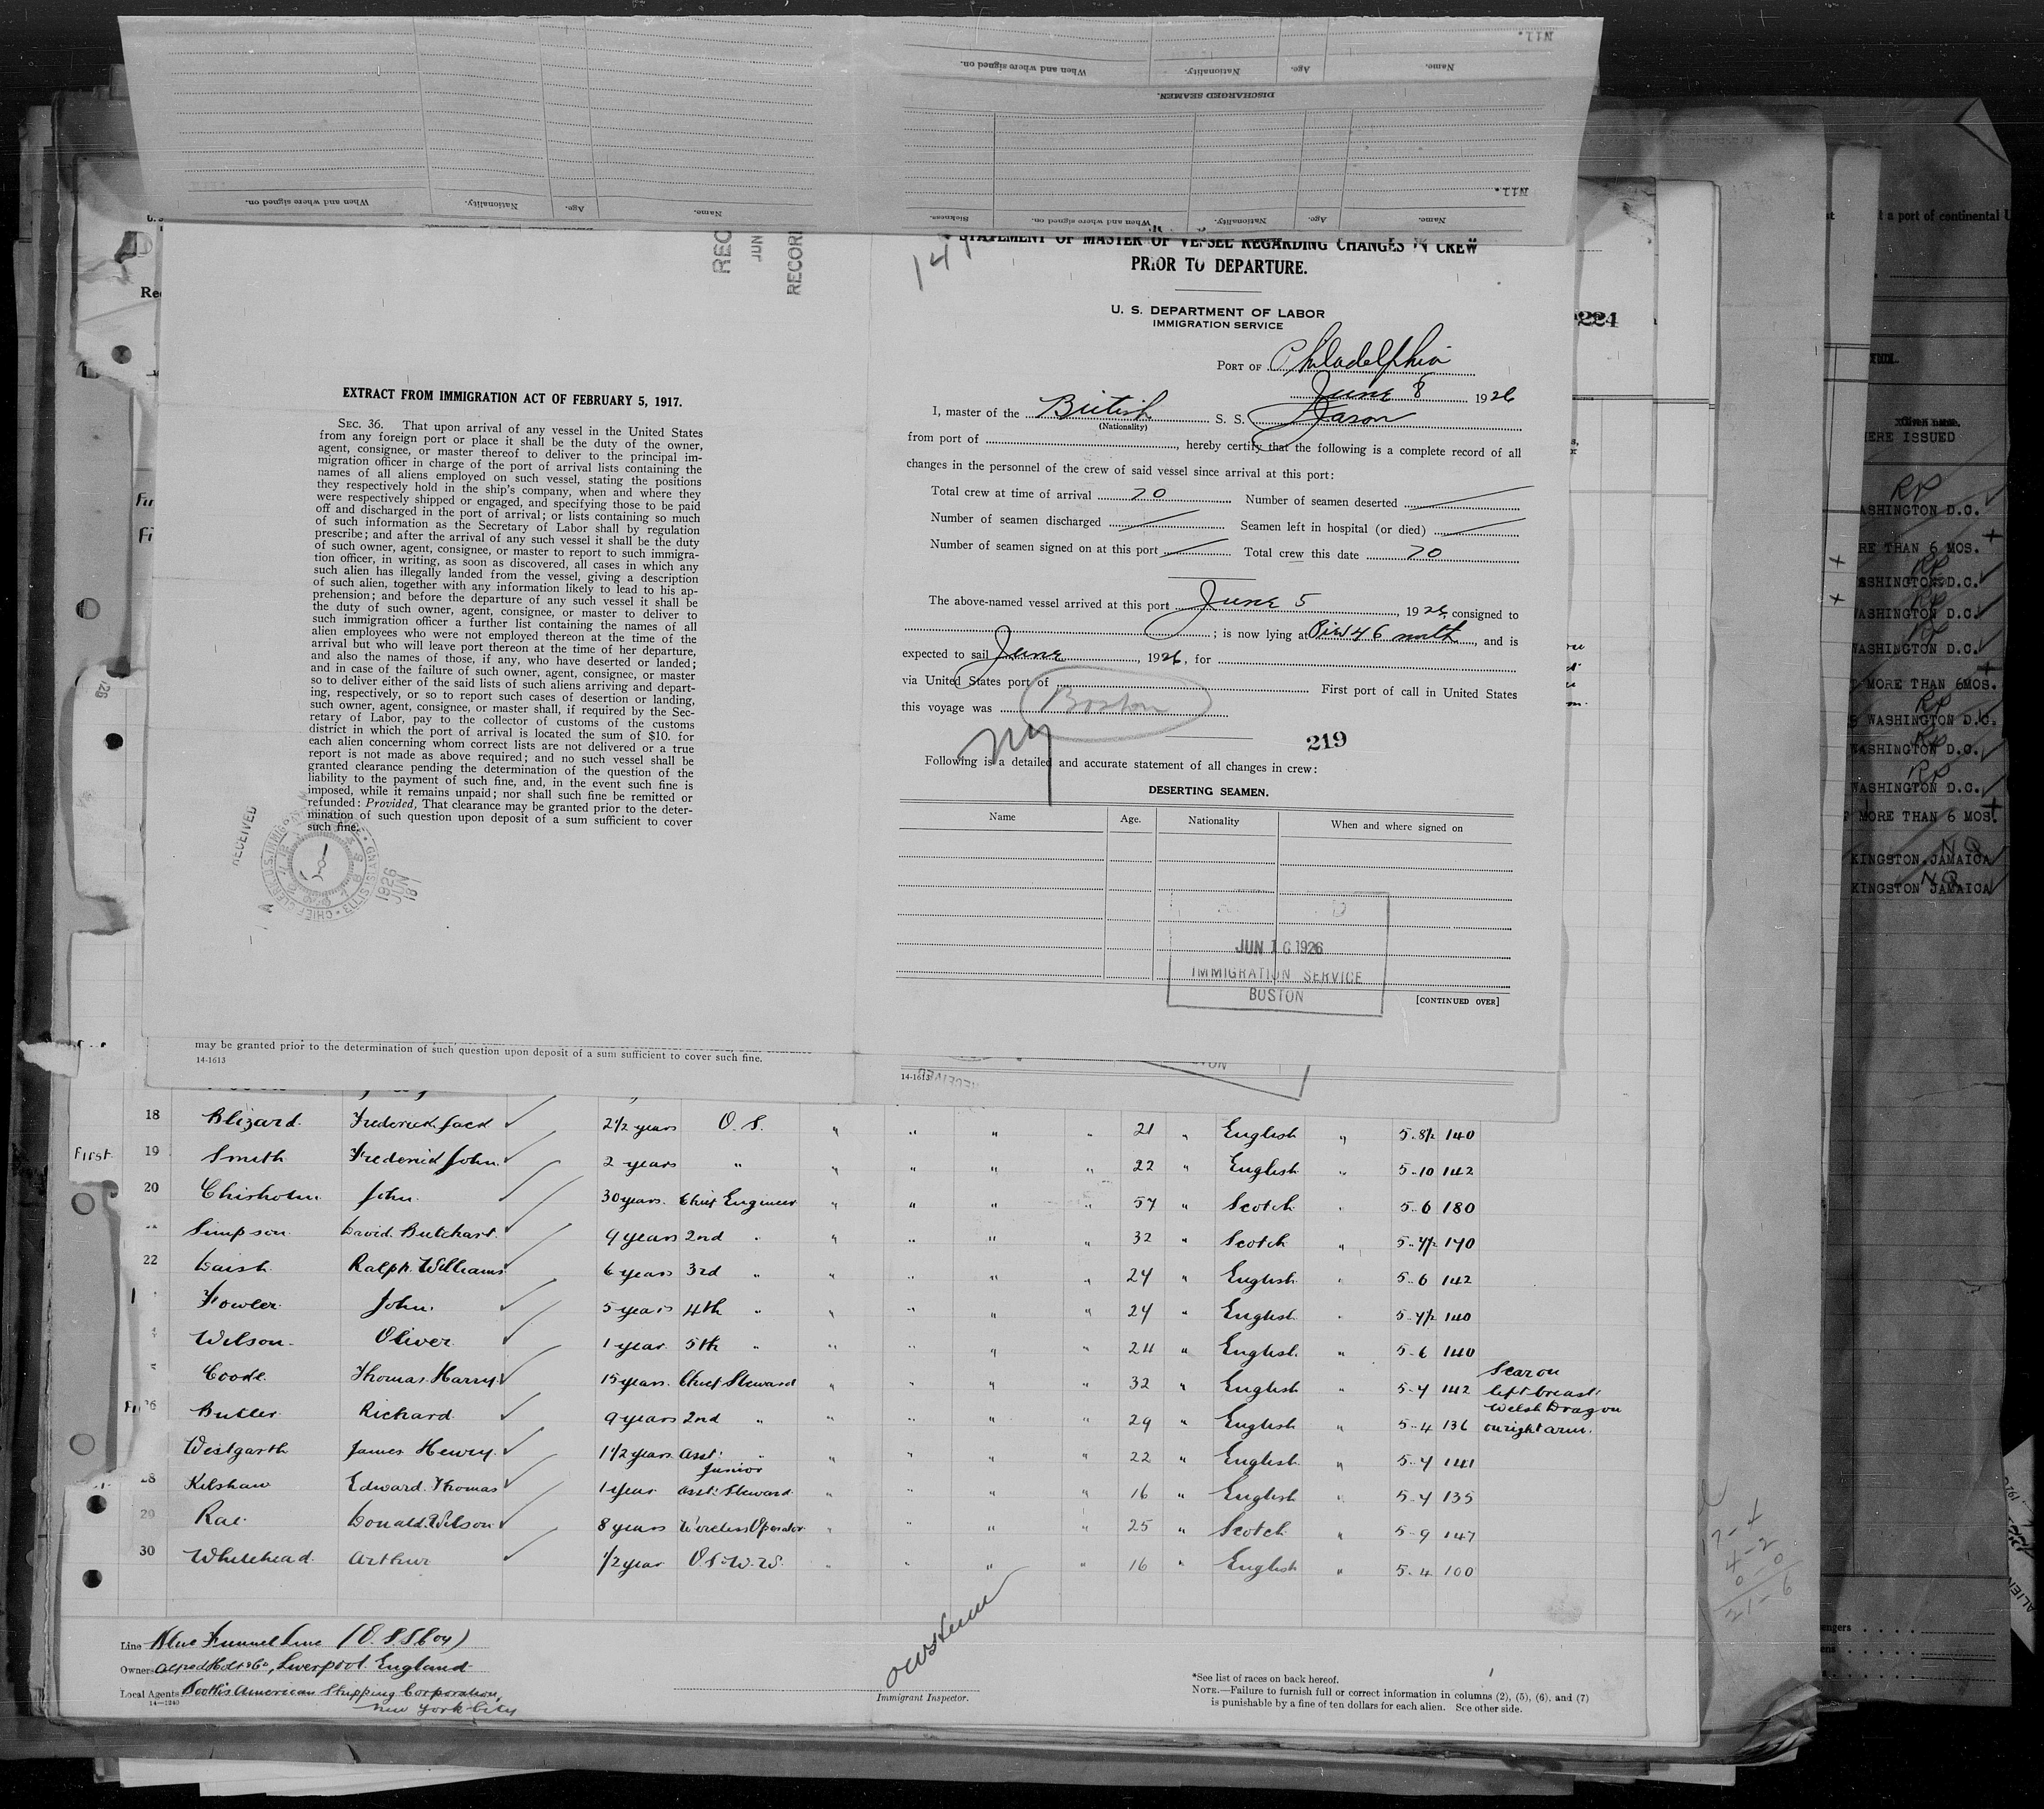 Nil.
Name.
Age.
Nationality.
When and where signed on.
DISCHARGED SEAMEN.
Nil.
Name.
Age.
Nationality.
When and where signed on.
Sickness.
Name.
Age.
Nationality.
When and where signed on.
STATEMENT OF MASTER OF VESSEL REGARDING CHANGES IN CREW
PRIOR TO DEPARTURE.
U. S. DEPARTMENT OF LABOR
IMMIGRATION SERVICE
PORT OF Philadelphia
June 8 1926
I, master of the British S. S. Jason
(Nationality)
from port of , hereby certify that the following is a complete record of all
changes in the personnel of the crew of said vessel since arrival at this port:
Total crew at time of arrival 70 Number of seamen deserted
Number of seamen discharged Seamen left in hospital (or died)
Number of seamen signed on at this port Total crew this date 70
The above-named vessel arrived at this port June 5, 1926, consigned to
; is now lying at Pier 46 north, and is
expected to sail June, 1926, for
via United States port of First port of call in United States
this voyage was Boston
NY
219
Following is a detailed and accurate statement of all changes in crew:
DESERTING SEAMEN.
Name Age. Nationality When and where signed on
JUN 16 1926
IMMIGRATION SERVICE
BOSTON
[CONTINUED OVER]
14-1613
REC
JUN
RECOR
EXTRACT FROM IMMIGRATION ACT OF FEBRUARY 5, 1917.
SEC. 36. That upon arrival of any vessel in the United States
from any foreign port or place it shall be the duty of the owner,
agent, consignee, or master thereof to deliver to the principal im-
migration officer in charge of the port of arrival lists containing the
names of all aliens employed on such vessel, stating the positions
they respectively hold in the ship's company, when and where they
were respectively shipped or engaged, and specifying those to be paid
off and discharged in the port of arrival; or lists containing so much
of such information as the Secretary of Labor shall by regulation
prescribe; and after the arrival of any such vessel it shall be the duty
of such owner, agent, consignee, or master to report to such immigra-
tion officer, in writing, as soon as discovered, all cases in which any
such alien has illegally landed from the vessel, giving a description
of such alien, together with any information likely to lead to his ap-
prehension; and before the departure of any such vessel it shall be
the duty of such owner, agent, consignee, or master to deliver to
such immigration officer a further list containing the names of all
alien employees who were not employed thereon at the time of the
arrival but who will leave port thereon at the time of her departure,
and also the names of those, if any, who have deserted or landed;
and in case of the failure of such owner, agent, consignee, or master
so to deliver either of the said lists of such aliens arriving and depart-
ing, respectively, or so to report such cases of desertion or landing,
such owner, agent, consignee, or master shall, if required by the Sec-
retary of Labor, pay to the collector of customs of the customs
district in which the port of arrival is located the sum of $10. for
each alien concerning whom correct lists are not delivered or a true
report is not made as above required; and no such vessel shall be
granted clearance pending the determination of the question of the
liability to the payment of such fine, and, in the event such fine is
imposed, while it remains unpaid; nor shall such fine be remitted or
refunded: Provided, That clearance may be granted prior to the deter-
mination of such question upon deposit of a sum sufficient to cover
such fine.
RECEIVED
1926
JUN
18
may be granted prior to the determination of such question upon deposit of a sum sufficient to cover such fine.
14-1613
18 Blizard Frederick Jack 2 1/2 years O.S. " " " " 21 " English " 5-8½ 140
First 19 Smith Frederick John 2 years " " " " " 22 " English " 5-10 142
20 Chisholm John 30 years Chief Engineer " " " 57 " Scotch " 5-6 180
Simpson David Butchart 9 years 2nd " " " " " 32 " Scotch " 5-7½ 170
22 Daish Ralph Williams 6 years 3rd " " " " " 24 " English " 5-6 142
Fowler John 5 years 4th " " " " " 24 " English " 5-7½ 140
Wilson Oliver 1 year 5th " " " " " 24 " English " 5-6 140
Coode Thomas Harry 15 years Chief Steward " " " " 32 " English " 5-7 142 Scar on left breast
26 Butler Richard 9 years 2nd " " " " " 29 " English " 5-4 136 Welsh Dragon on right arm.
Westgarth James Henry 1 1/2 years Asst. " " " " " 22 " English " 5-7 141
28 Kelshaw Edward Thomas 1 year Junior Asst. Steward " " " " 16 " English " 5-7 135
29 Rae Donald Wilson 8 years Wireless Operator " " " " 25 " Scotch " 5-9 147
30 Whitehead Arthur 1/2 year " " " " 16 " English " 5-4 100
Line Blue Funnel Line
Owners Alfred Holt & Co, Liverpool England
Local Agents Booth's American Shipping Corporation,
14—1240
New York City
Immigrant Inspector.
*See list of races on back hereof.
NOTE.—Failure to furnish full or correct information in columns (2), (5), (6), and (7)
is punishable by a fine of ten dollars for each alien. See other side.
224
t a port of continental U
Given name.
HERE ISSUED
RP
WASHINGTON D.C.
RE THAN 6 MOS.
WASHINGTON D.C.
WASHINGTON D.C.
WASHINGTON D.C.
MORE THAN 6MOS.
WASHINGTON D.C.
WASHINGTON D.C.
WASHINGTON D.C.
MORE THAN 6 MOS.
KINGSTON JAMAICA
KINGSTON JAMAICA
17-4
4-2
0-0
21-6
ALIEN